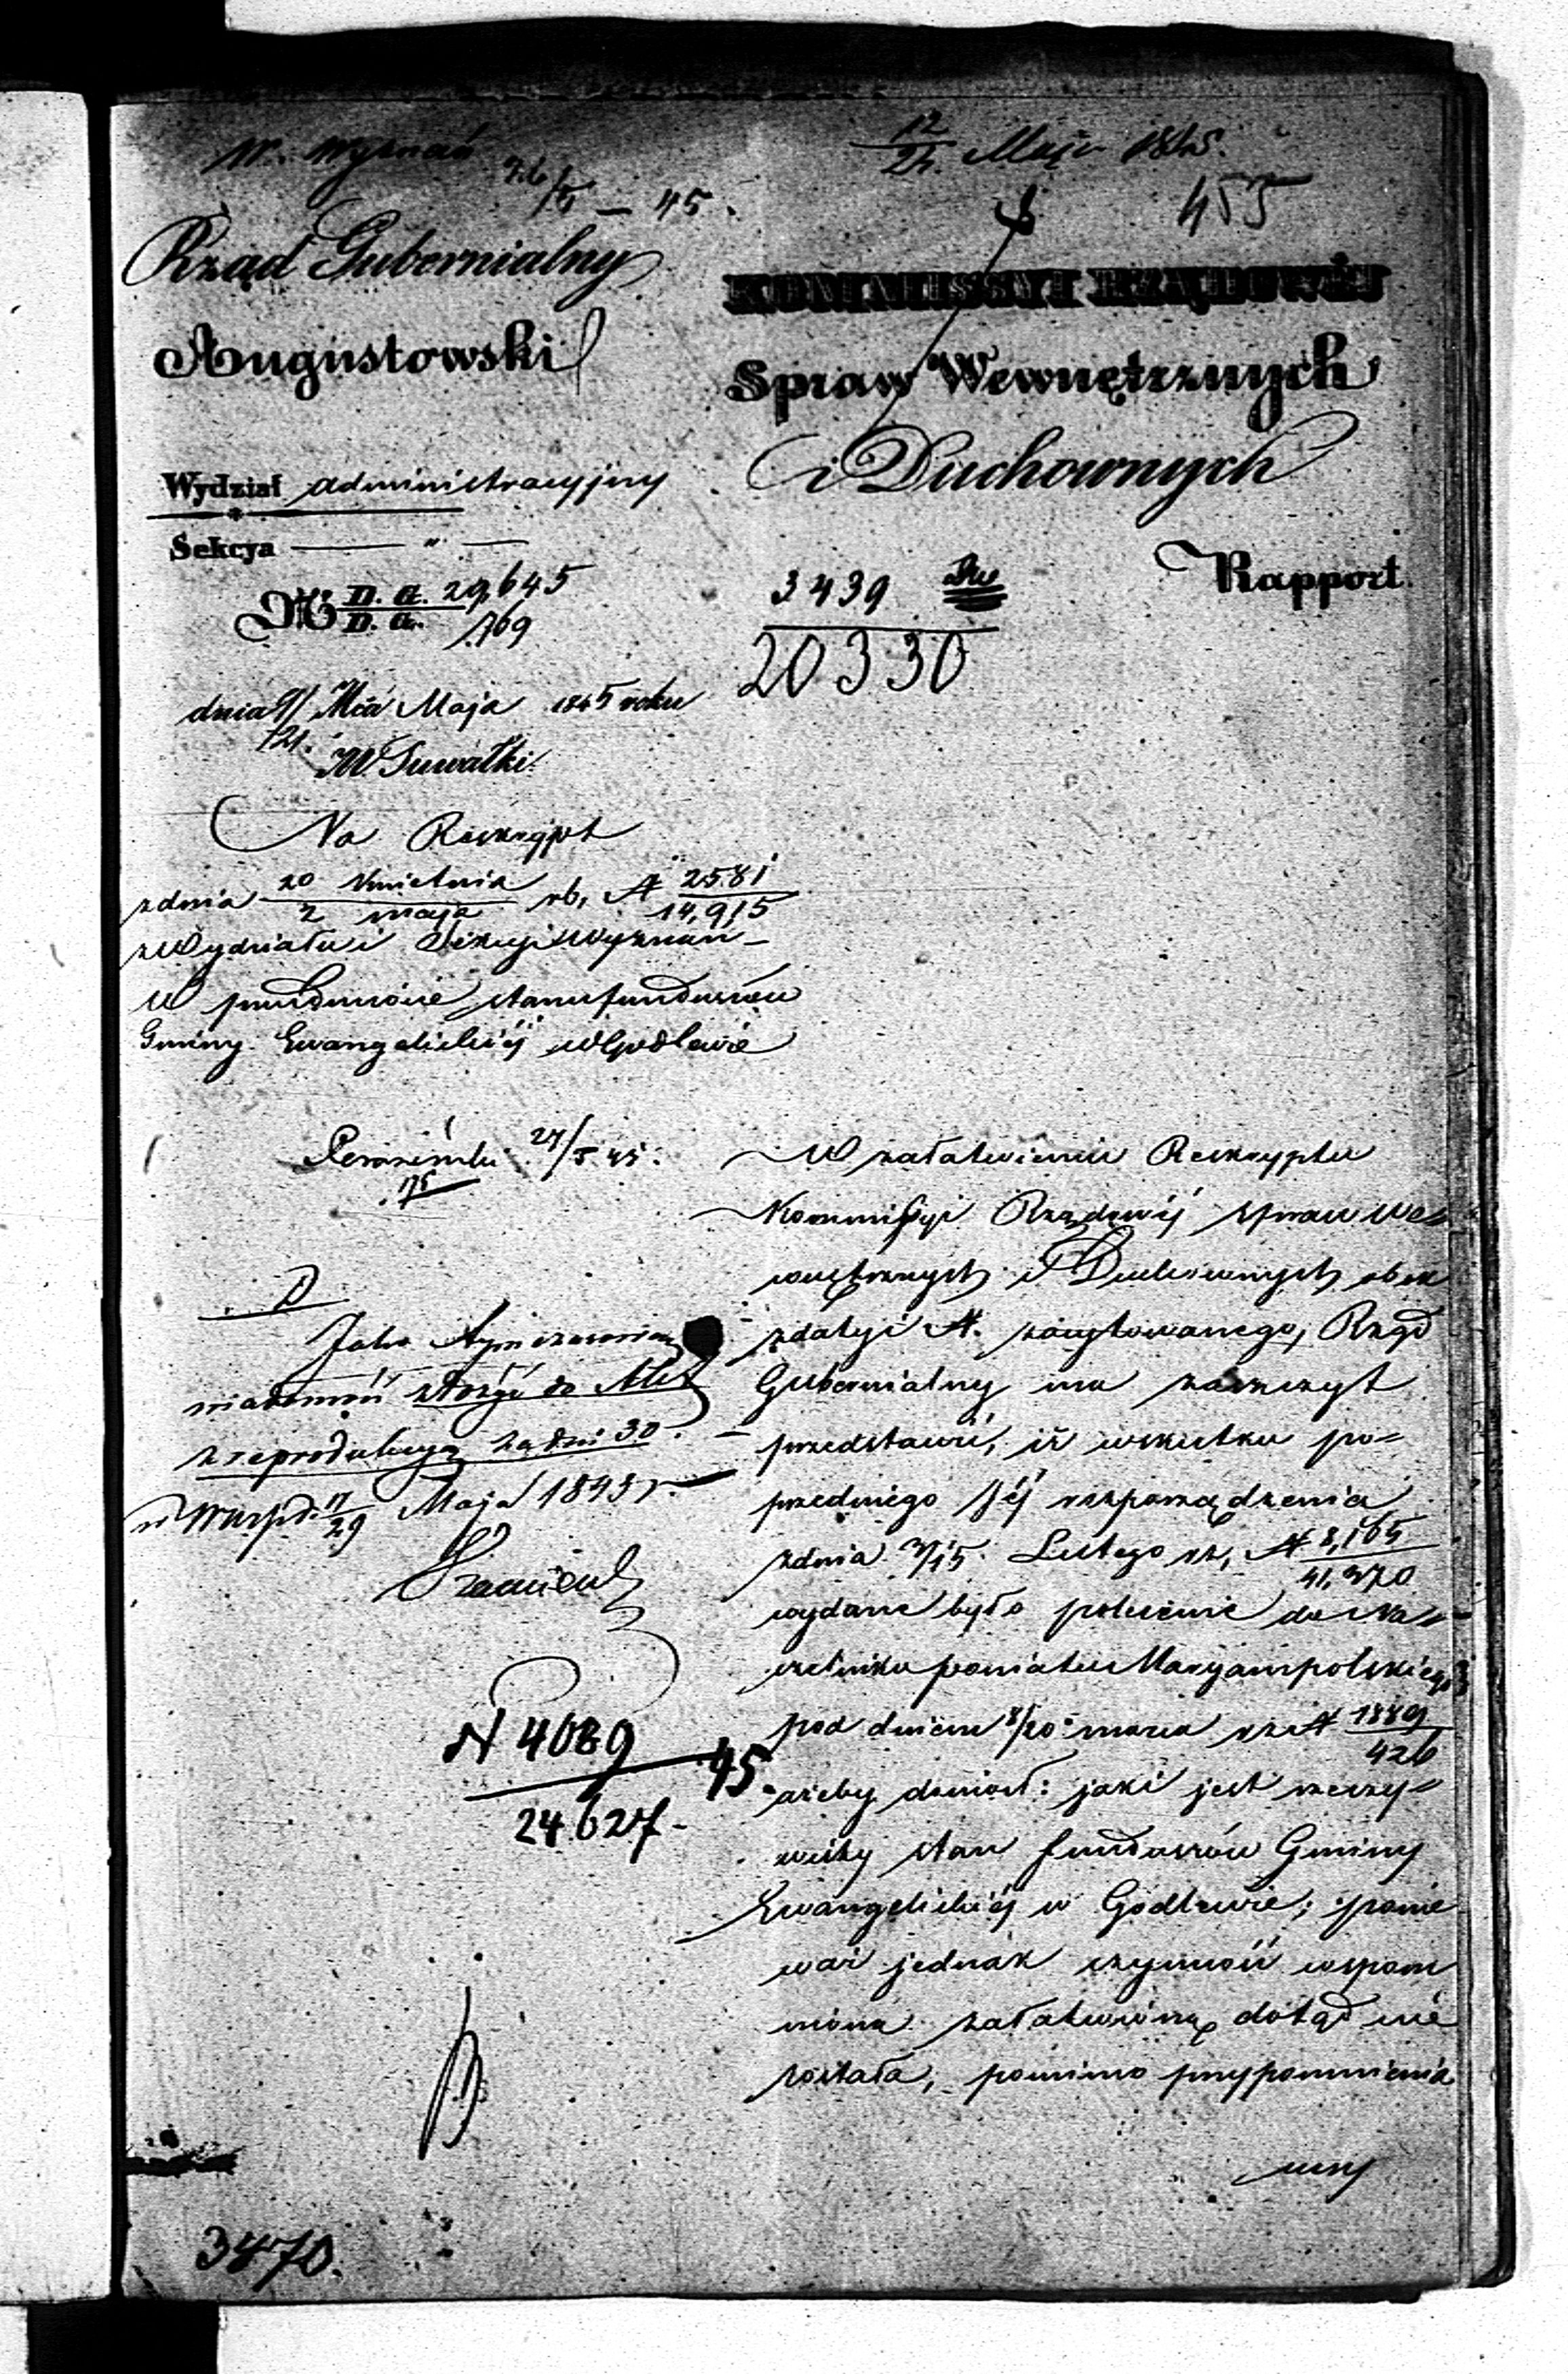 W. Wyznań
12/24 Maja 1845.
26/5 – 45.
455
Rząd Gubernialny
Augustowski
KOMMISSYI RZĄDOWÉJ
Spraw Wewnętrznych
i Duchownych
Rapport.
Wydział administracyjny
Sekcya — " —
№ D. A. 29,645
D. A. 769
3439
20330
dnia 9/21. Mca Maja 1845 roku
W Suwałki.
Na Reskrypt
z dnia 20 Kwietnia / 2 maja rb, N 2581 / 14,915
z Wydziału i Sekcyi Wyznań –
W przedmiocie stanu funduszów
Gminy Ewangelickiéj w Godlewie
27/5 45.
W załatwieniu Reskryptu
Kommissyi Rządowéj Spraw We=
wnętrznych i Duchownych obok
z daty i N. zacytowanego, Rząd
Gubernialny ma zaszczyt
przedstawić, iż wskutku po=
przedniego Jéj rozporządzenia
z dnia 3/15 Lutego rb, N 8,165 / 41,370
wydane było polecenie do Na=
czelnika powiatu Maryampolskiego
pod dniem 8/20 marca rb N 1889 / 426
ażeby doniósł: jaki jest rzeczy=
wisty stan funduszów Gminy
Ewangelickiéj w Godlewie; ponie
waż jednak czynność wspom
niona załatwioną dotąd nie
została, pomimo przypomnienia
Jako tymczasową
wiadomość złożyć do Akt
z reprodukcyą za dni 30. –
w Warsz d. 17/29 Maja 1845 r.
N 4089
24627 45.
3470.